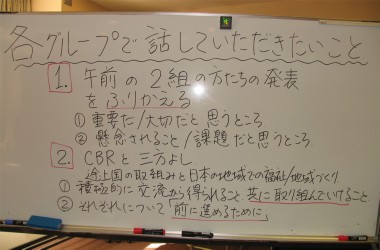 各グループで話していただきたいこと
1. 午前の2組の方たちの発表
をふりかえる
① 重要だ/大切だと思うところ
② 懸念されること/課題だと思うところ
2. CBRと三方よし
途上国の取組みと日本の地域での福祉/地域づくり
① 積極的に交流から得られること 共に取り組んでいけること
② それぞれについて「前に進めるために」